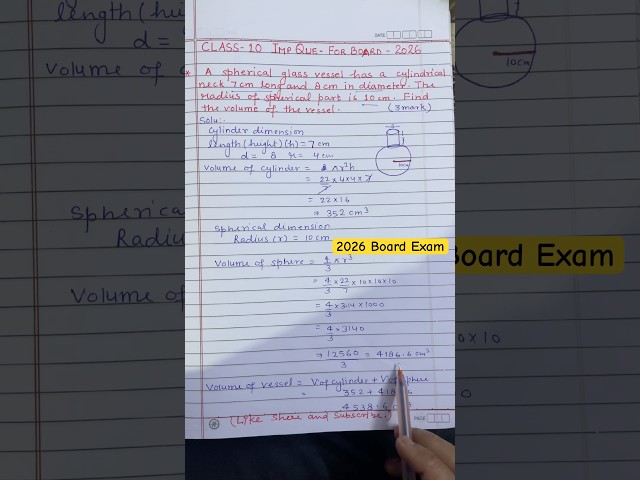 DATE
CLASS-10 IMP QUE-FOR BOARD-2026
* A spherical glass vessel has a cylindrical
neck 7cm long and 8cm in diameter. The
radius of spherical part is 10 cm. Find
the volume of the vessel. (3mark)
Solu:-
Cylinder dimension
length(height)(h)=7cm
d= 8 r= 4cm
Volume of cylinder = πr²h
= 22/7 × 4×4×7
= 22×16
⇒ 352 cm³
10cm
Spherical dimension
Radius (r) = 10cm
2026 Board Exam
Volume of sphere = 4/3 πr³
= 4/3 × 22/7 × 10×10×10
= 4/3 × 3.14 × 1000
= 4/3 × 3140
⇒ 12560/3 = 4186.6 cm³
Volume of vessel = V of cylinder + V of sphere
= 352 + 4186.6
4538.6
(Like Share and Subscribe.
PAGE
length(height
d =
Volume of c
Spherica
Radiu
Volume
10cm
Board Exam
0×10